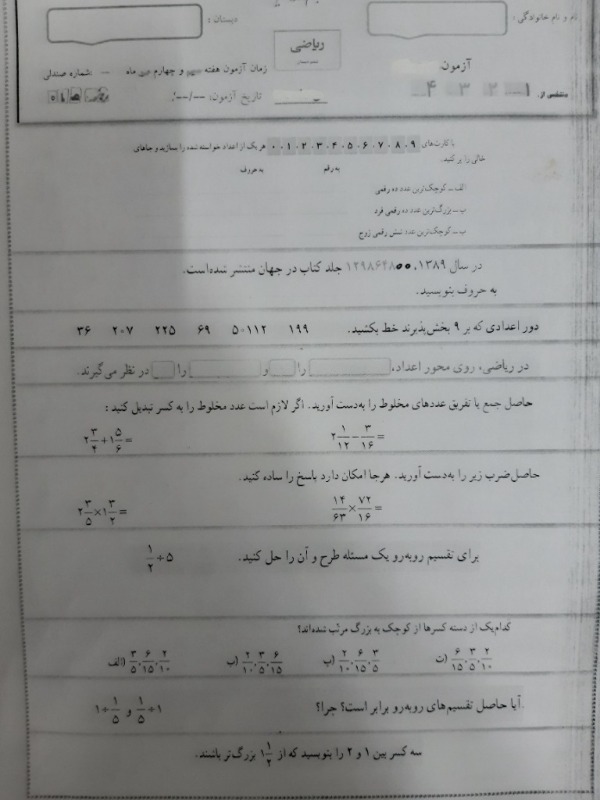 نام و نام خانوادگی :
دبستان :
ریاضی
آزمون
زمان آزمون هفته و چهارم ماه
شماره صندلی
منتخبی از: ۱ ۲ ۳ ۴
تاریخ آزمون: --/--/
با کارت‌های ۹ ، ۸ ، ۷ ، ۶ ، ۵ ، ۴ ، ۳ ، ۲ ، ۱ ، ۰ هر یک از اعداد خواسته شده را بسازید و جاهای
خالی را پر کنید.
به رقم به حروف
الف ــ کوچک‌ترین عدد ده رقمی
ب ــ بزرگ‌ترین عدد ده رقمی فرد
پ ــ کوچک‌ترین عدد شش رقمی زوج
در سال ۱۳۸۹، ۱۲۹۸۶۴۸۰۰ جلد کتاب در جهان منتشر شده‌است.
به حروف بنویسید.
دور اعدادی که بر ۹ بخش‌پذیرند خط بکشید. ۱۹۹ ۵۰۱۱۲ ۶۹ ۲۲۵ ۲۰۷ ۳۶
در ریاضی، روی محور اعداد، را و را در نظر می‌گیرند.
حاصل جمع یا تفریق عددهای مخلوط را به‌دست آورید. اگر لازم است عدد مخلوط را به کسر تبدیل کنید :
۲ ۱/۱۲ − ۳/۱۶ =
۲ ۳/۴ + ۱ ۵/۶ =
حاصل‌ضرب زیر را به‌دست آورید. هرجا امکان دارد پاسخ را ساده کنید.
۱۴/۶۳ × ۷۲/۱۶ =
۲ ۳/۵ × ۱ ۳/۲ =
برای تقسیم روبه‌رو یک مسئله طرح و آن را حل کنید. ۱/۲ ÷ ۵
کدام‌یک از دسته کسرها از کوچک به بزرگ مرتب شده‌اند؟
الف) ۳/۵ ، ۶/۱۵ ، ۲/۱۰
ب) ۲/۱۰ ، ۳/۵ ، ۶/۱۵
پ) ۲/۱۰ ، ۶/۱۵ ، ۳/۵
ت) ۶/۱۵ ، ۳/۵ ، ۲/۱۰
آیا حاصل تقسیم‌های روبه‌رو برابر است؟ چرا؟ ۱/۵ ÷ ۱ و ۱ ÷ ۱/۵
سه کسر بین ۱ و ۲ را بنویسید که از ۱ ۱/۲ بزرگ‌تر باشند.